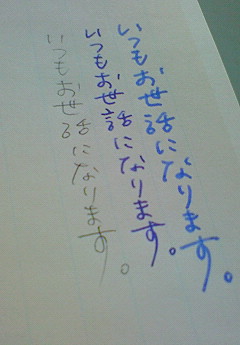 いつもお世話になります。
いつもお世話になります。
いつもお世話になります。